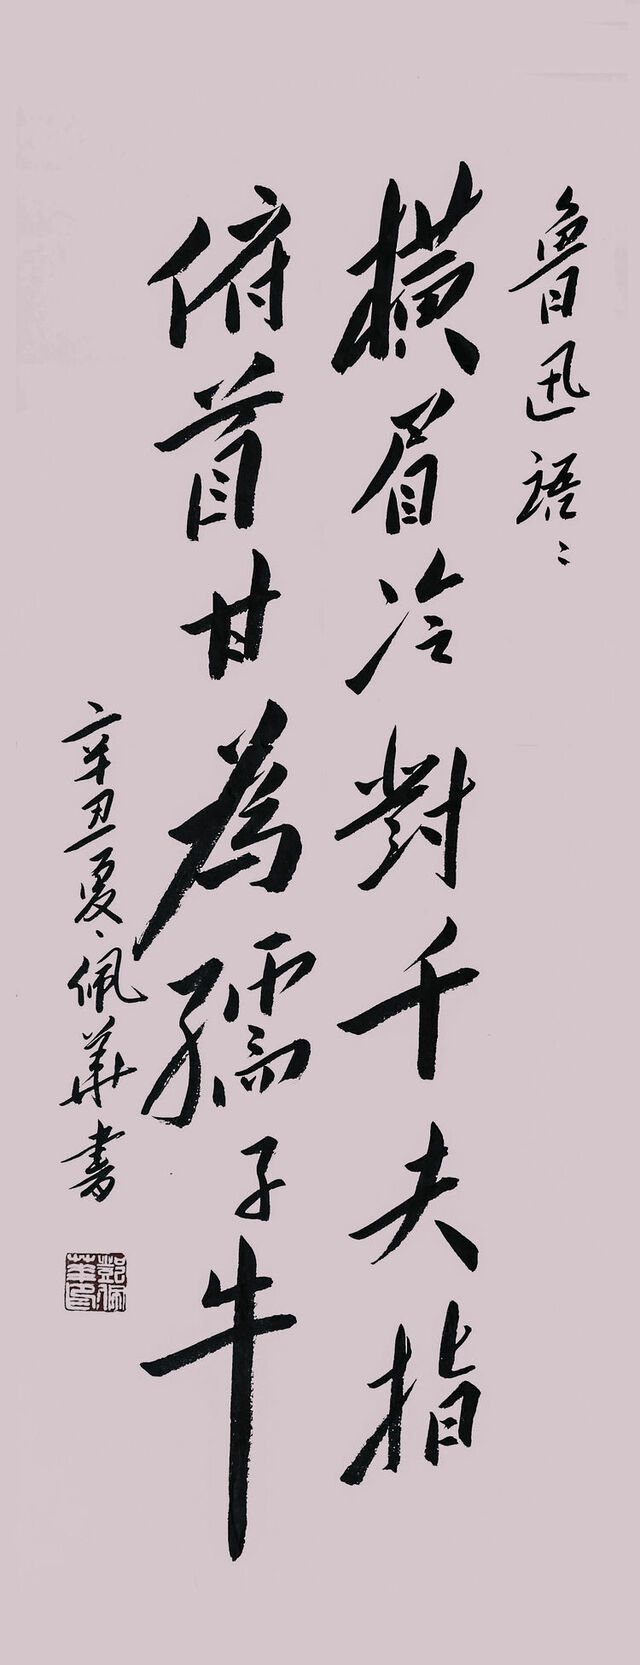 魯迅語
橫眉冷對千夫指
俯首甘為孺子牛
辛丑夏佩華書
鄧佩華印